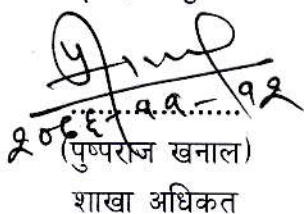 २०६६-११-१२
(पुष्पराज खनाल)
शाखा अधिकत